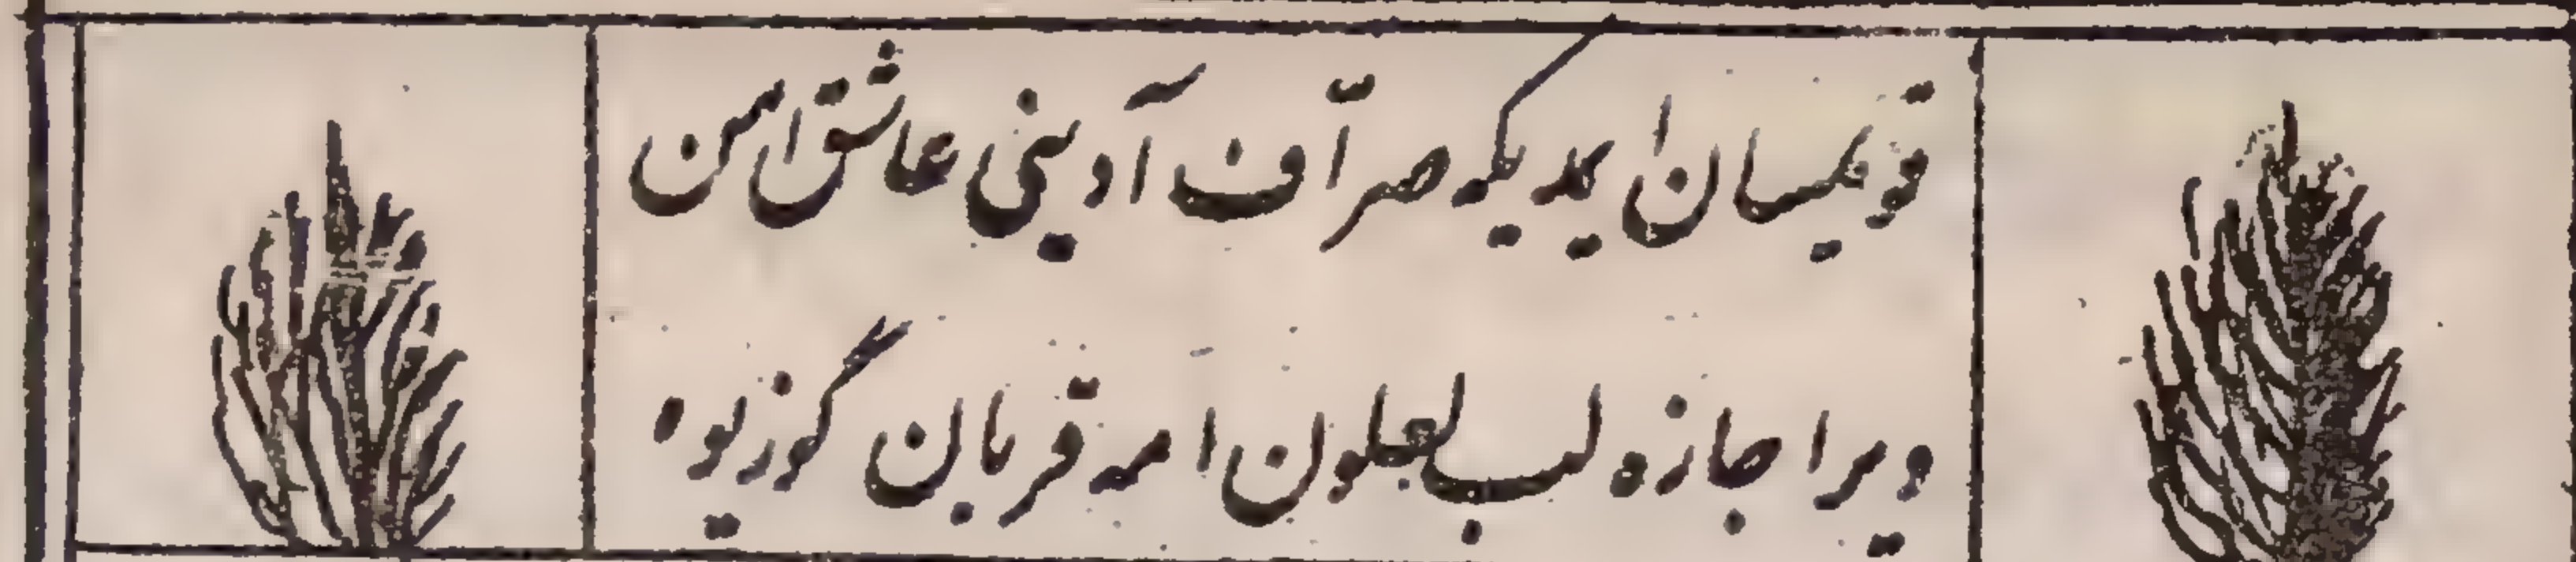 قویمیسان ایدیکه صرّاف آدینی عاشق امسن
ویر اجازه لب لعلون امه قربان گوزیوه